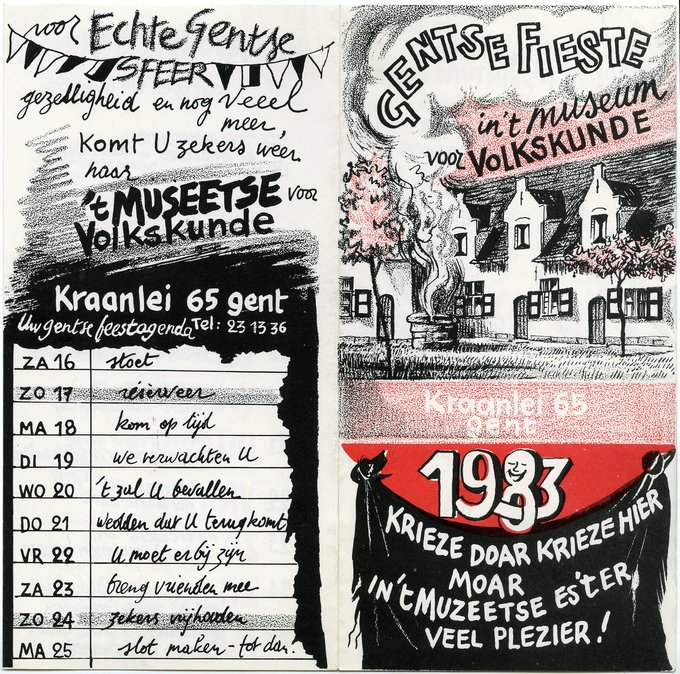 voor Echte Gentse
SFEER
gezelligheid en nog veeel
meer,
Komt U zekers weer
naar
't MUSEETSE voor
Volkskunde
Kraanlei 65 gent
Uw gentse feestagenda Tel: 23 13 36
ZA 16 stoet
ZO 17 reserveer
MA 18 kom op tijd
DI 19 we verwachten U
WO 20 't zal U bevallen
DO 21 wedden dat U terugkomt
VR 22 U moet erbij zijn
ZA 23 breng vrienden mee
ZO 24 zekers vrijhouden
MA 25 slot maken - tot dan!
GENTSE FIESTE
in't museum
voor VOLKSKUNDE
Kraanlei 65
gent
1983
KRIEZE DOAR KRIEZE HIER
MOAR
IN 't MUZEETSE ES'T ER
VEEL PLEZIER!